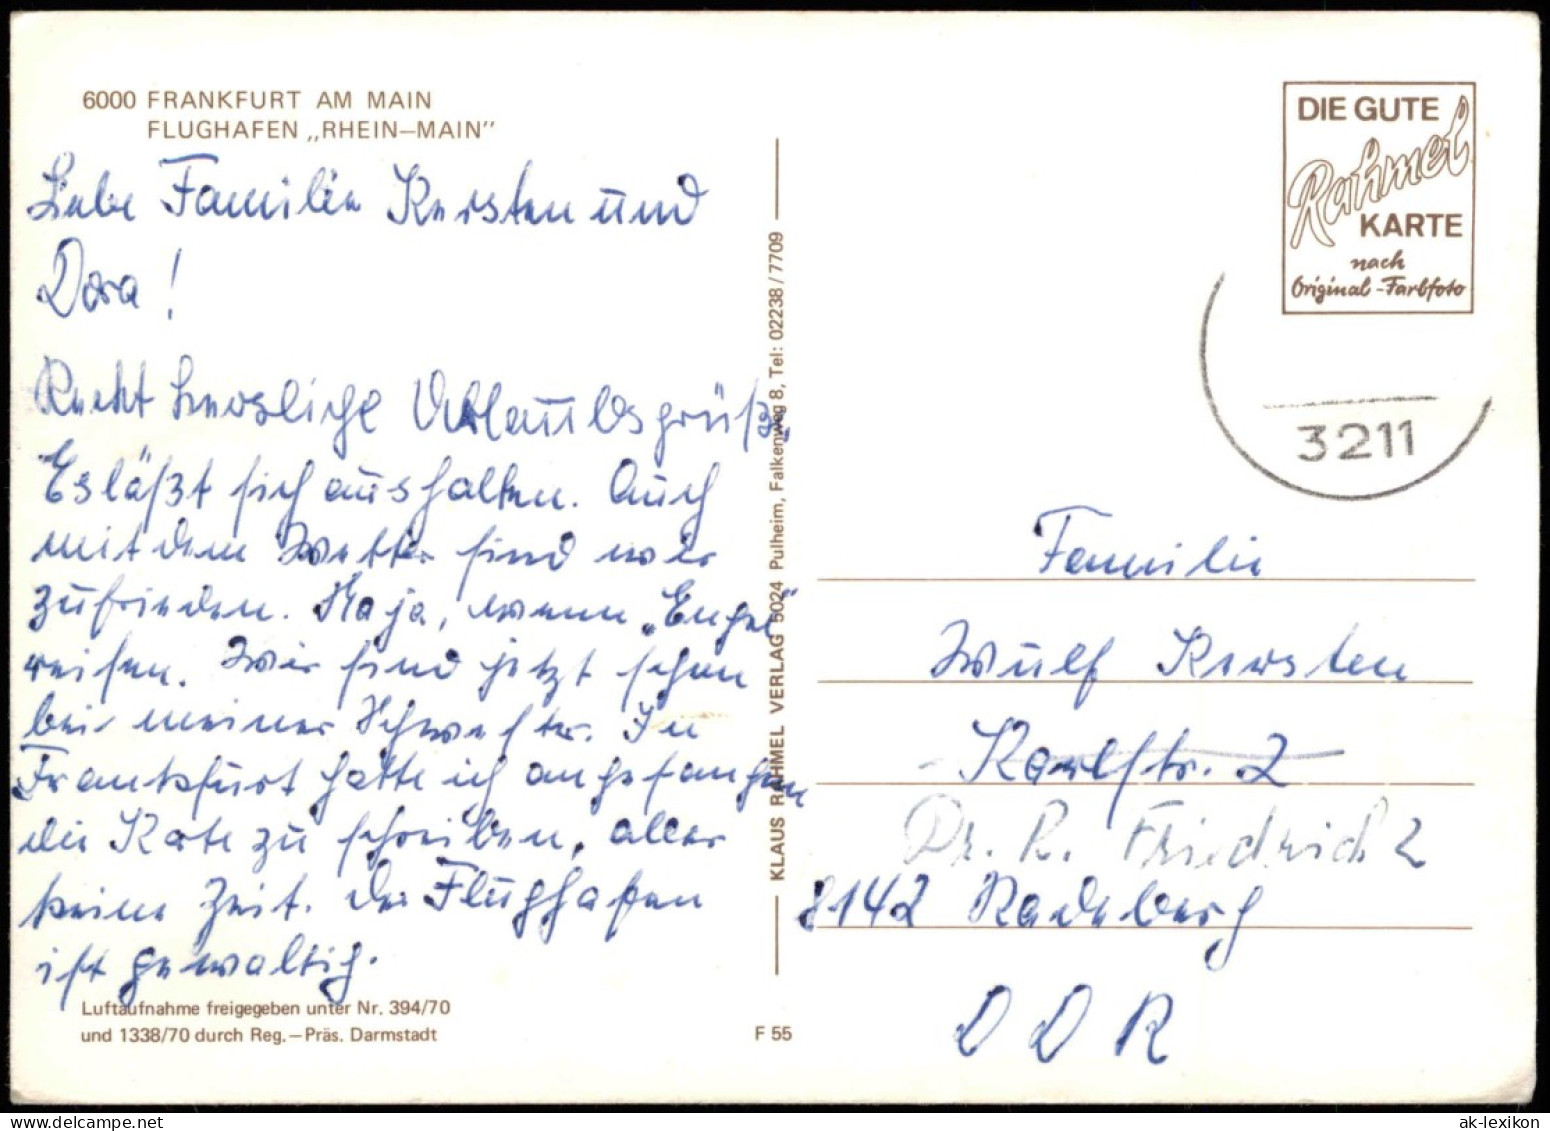 6000 FRANKFURT AM MAIN
FLUGHAFEN „RHEIN—MAIN"
Liebe Familie Kersten und
Dora!
Recht herzliche Urlaubsgrüße.
Es läßt sich aushalten. Auch
mit dem Wetter sind wir
zufrieden. Na ja, wenn „Engel"
reisen. Wir sind jetzt schon
bei meiner Schwester. In
Frankfurt hatte ich angefangen
die Karte zu schreiben, aber
keine Zeit. Der Flughafen
ist gewaltig.
Luftaufnahme freigegeben unter Nr. 394/70
und 1338/70 durch Reg.—Präs. Darmstadt
F 55
KLAUS RAHMEL VERLAG 5024 Pulheim, Falkenweg 8, Tel: 02238/7709
DIE GUTE
Rahmel
KARTE
nach
Original-Farbfoto
3211
Familie
Wulf Kersten
Karlstr. 2
Dr. R. Friedrich 2
8142 Radeberg
DDR
ak-lexikon.com